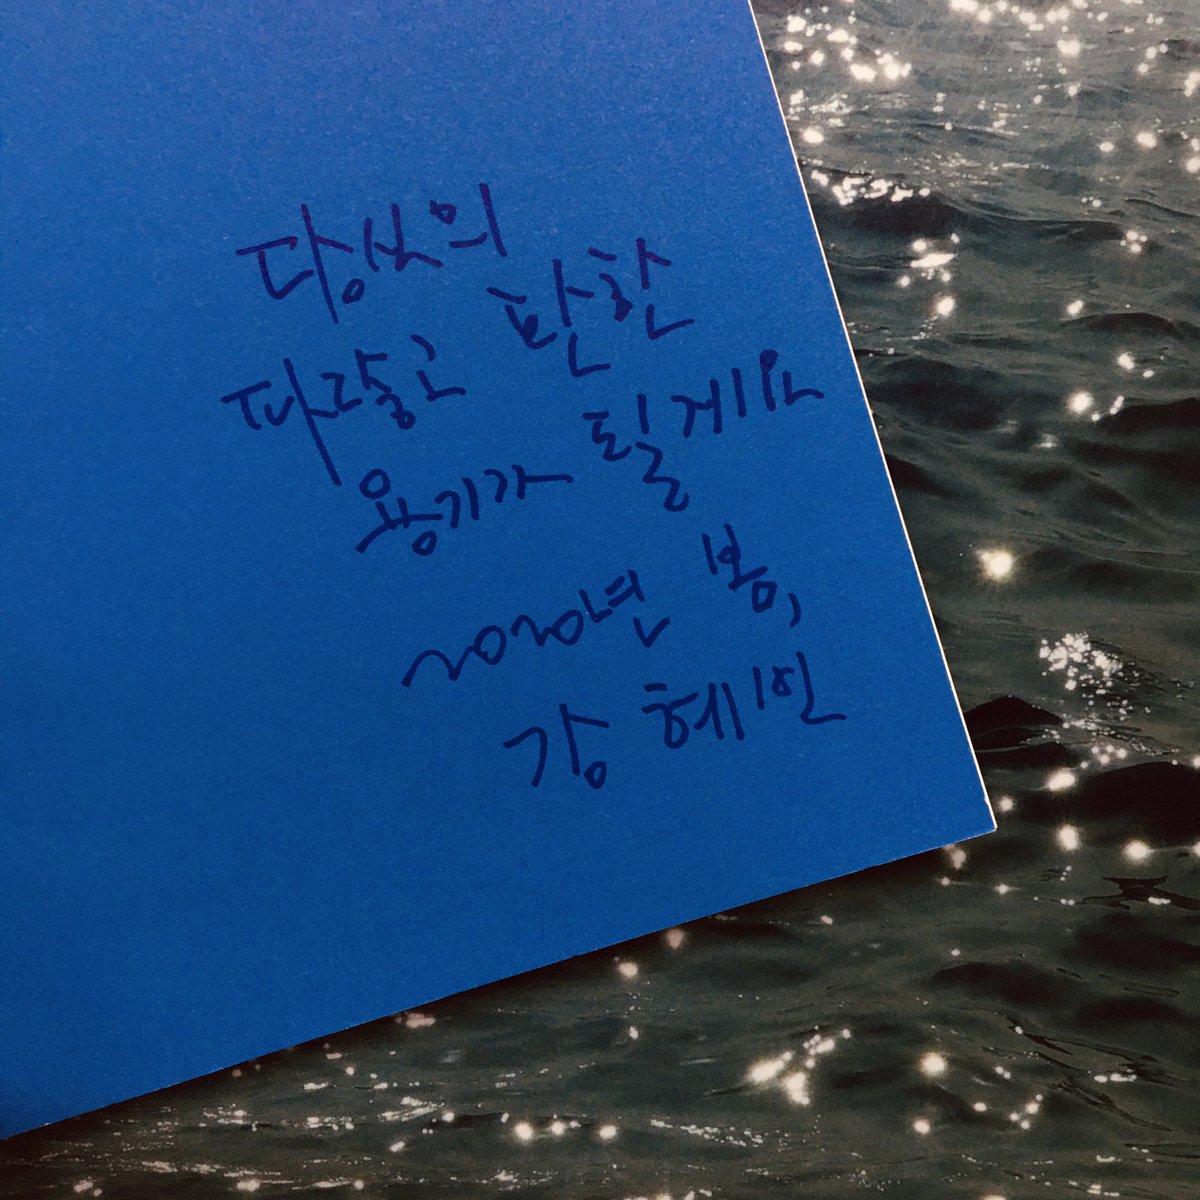 당신의
파랗고 환한
용기가 될게요
2020년 봄,
강혜빈